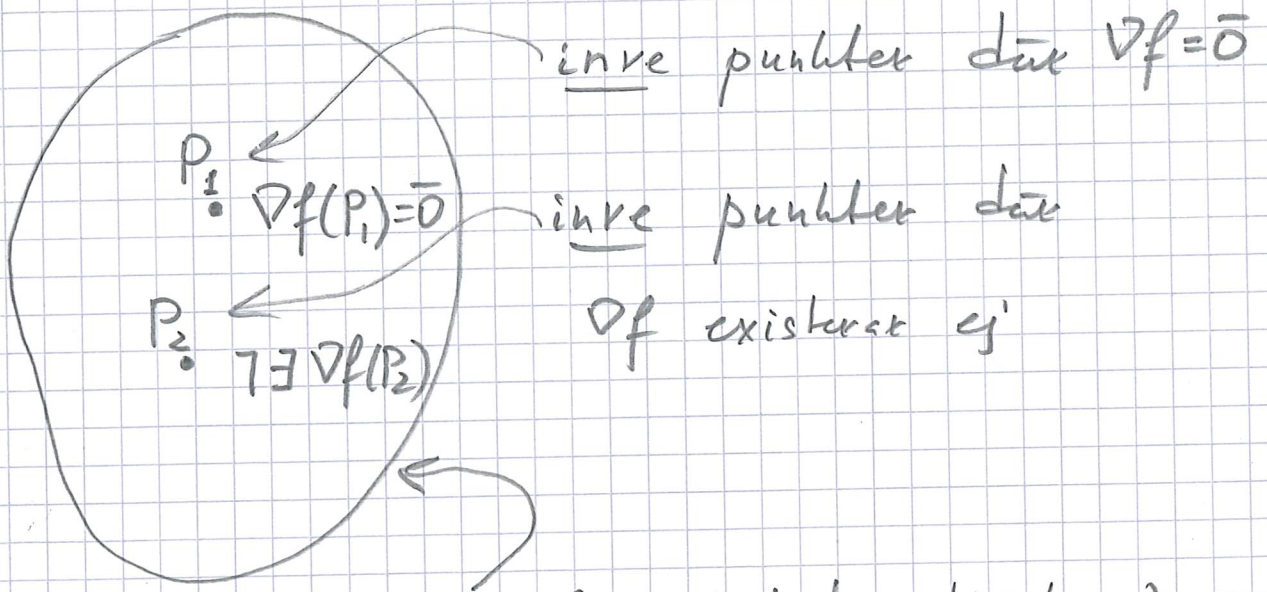 inre punkter där ∇f = 0̄
P₁
∇f(P₁) = 0̄
inre punkter där
∇f existerar ej
P₂
¬∃ ∇f(P₂)